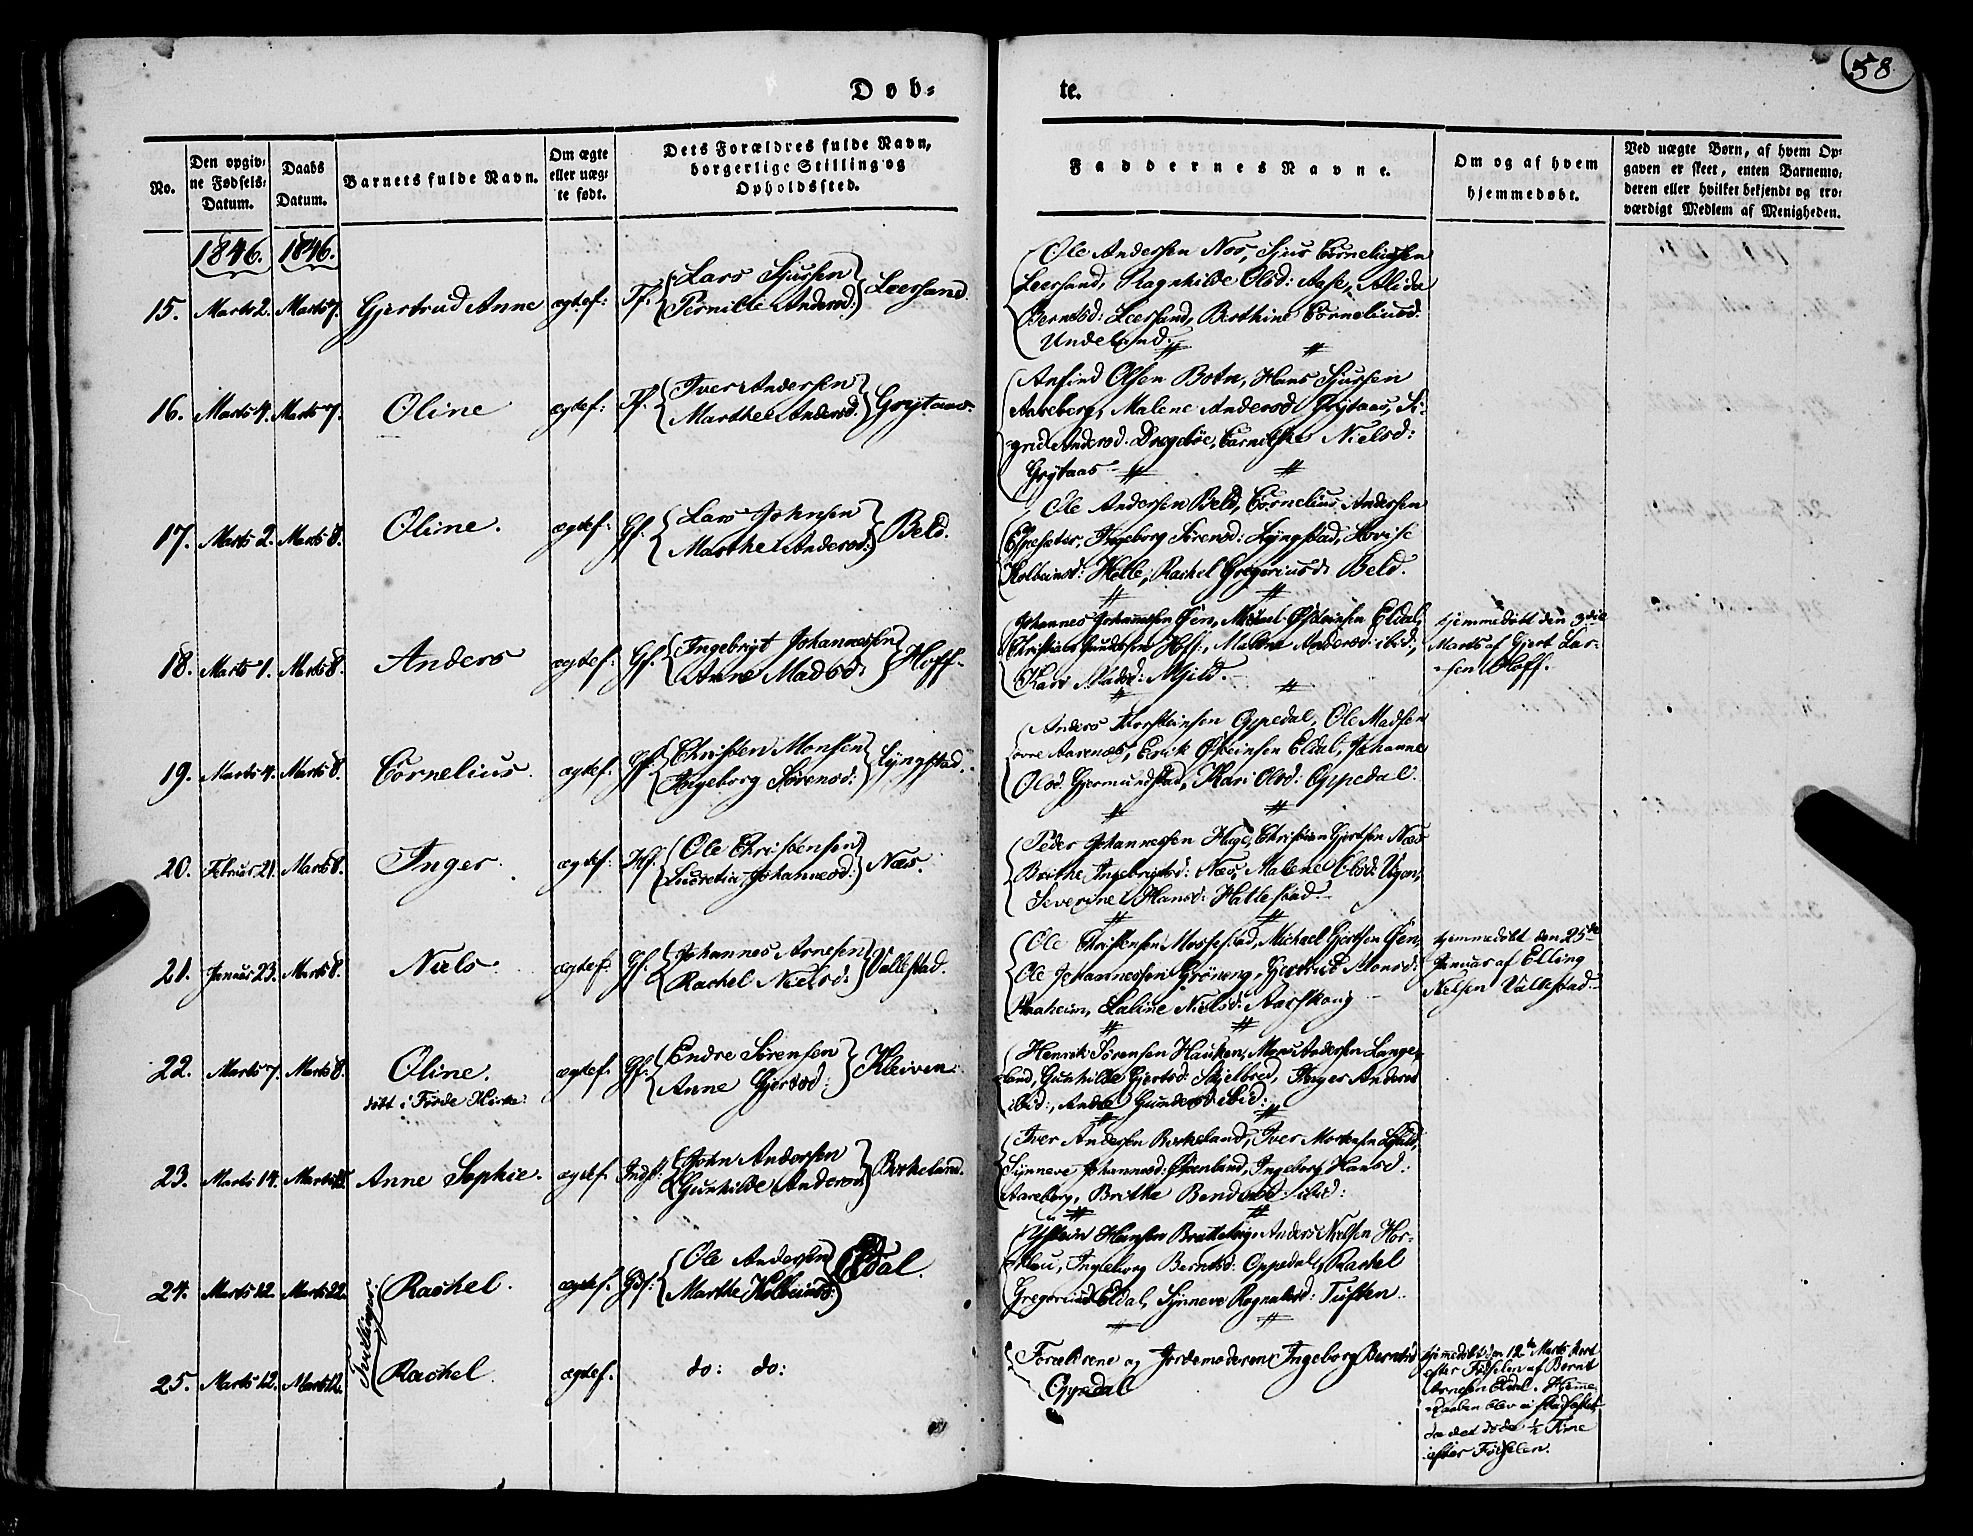 58.
Døb-
te.
No.
Den opgiv-
ne Fødsels-
Datum.
Daabs
Datum.
Barnets fulde Navn.
Om ægte
eller uæg-
te født.
Dets Forældres fulde Navn,
borgerlige Stilling og
Opholdssted.
Faddernes Navne.
Om og af hvem
hjemmedøbt.
Ved uægte Børn, af hvem Op-
gaven er skeet, enten Barnemo-
deren eller hvilket bekjendt og tro-
værdigt Medlem af Menigheden.
1846. 1846.
15. Marts 2. Marts 7. Gjertrud Anne ægtef: Pf.
Lars Sjursen
Pernille Andersd:
Leersand.
Ole Andersen Nos, Sjur Corneliussen
Leersand, Ragnhilde Olsd: Aase, Alida
Berntsd: Leersand, Berthine Corneliusd.
Undeland.
16. Marts 4. Marts 7. Oline ægtef: Pf.
Iver Andersen
Marthe Andersd.
Grytaas.
Anfind Olsen Botn, Hans Sjursen
Aareberg, Malene Andersd: Grytaas, Si-
gride Andersd: Nielsd:
Grytaas
17. Marts 2. Marts 8. Oline. ægtef: Gf.
Lars Johnsen
Marthe Andersd:
Beld.
Ole Andersen Beld, Cornelius Andersen
Espesæter, Ingeborg Sørensd: Lyngstad, Lovise
Kolbeinsd: Helle, Rachel Gregoriusd: Beld.
18. Marts 1. Marts 8. Anders ægtef: Gf.
Ingebrigt Johannessen
Anne Madsd.
Hoff.
Johannes Johannessen Øen, Michael Østeinsen Eldal,
Hoff, Malene Andersd: ibid:,
Kari Madsd: Mjeld.
Hjemmedøbt den 3die
Marts af Gjert Lar-
sen Hoff.
19. Marts 4. Marts 8. Cornelius. ægtef: Gf.
Christen Monsen
Ingeborg Sørensd:
Lyngstad.
Anders Thorsteinsen Oppedal, Ole Madsen
øvre Aarenæs, Erik Østeinsen Eldal, Johanne
Olsd. Gjermundstad, Kari Olsd: Oppedal.
20. Februar 21. Marts 8. Inger. ægtef: Hf:
Ole Christensen
Lucretia Johannesd:
Næs.
Peder Johannessen Hage, Christian Gjertsen Næs
Brithe Ingebrigtsd: Næs, Malene Olsd:
Severine Hansd: Hatlestad.
21. Januar 23. Marts 8. Niels. ægtef. Gf.
Johannes Arnesen
Rachel Nielsd:
Vallestad.
Ole Christensen Mossestad, Michael Gjertsen Øen,
Ole Johannessen Grøneng, Gjertrud Monsd:
Haaheim, Laline Nielsd: Aarskoug
Hjemmedøbt den 25de
Januar af Elling
Nielsen Vallestad.
22. Marts 7. Marts 8. Oline. ægtef. Gf.
døbt i Førde Kirke.
Endre Sørensen
Anne Gjertsd:
Kleiven.
Henrik Sørensen Hauken, Mons Andersen Lange-
land, Gunhilde Gjertsd: Skjelbred, Inger Andersd
ibid:, Andrea Gundersd: ibid:
23. Marts 14. Marts 15. Anne Sophie. ægtef. Indf:
John Andersen
Gunhilde Andersd:
Birkeland.
Iver Andersen Birkeland, Iver Mortensen
Synneve Johannesd: Ørenland, Ingeborg Hansd:
Aareberg, Brithe Bendixsd: ibid:
24. Marts 12. Marts 22. Rachel. ægtef. Gf:
Tvillinger.
Ole Andersen
Marthe Kolbeinsd:
Eldal.
Østein Hansen Anders Nielsen Hor-
Ingeborg Berntsd: Oppedal, Rachel
Gregoriusd Eldal, Synneve Ragnaldsd: Tuften.
25. Marts 12. Marts 12. Rachel. ægtef.
do: do:
Forældrene og Jordemoderen Ingeborg Berntsd
Oppedal
Hjemmedøbt den 12te Marts
efter Fødselen af Bernt
Arnesen Eldal. Hjemme-
daaben blev ei stadfæstet,
da det døde ½ Time
efter Fødselen.